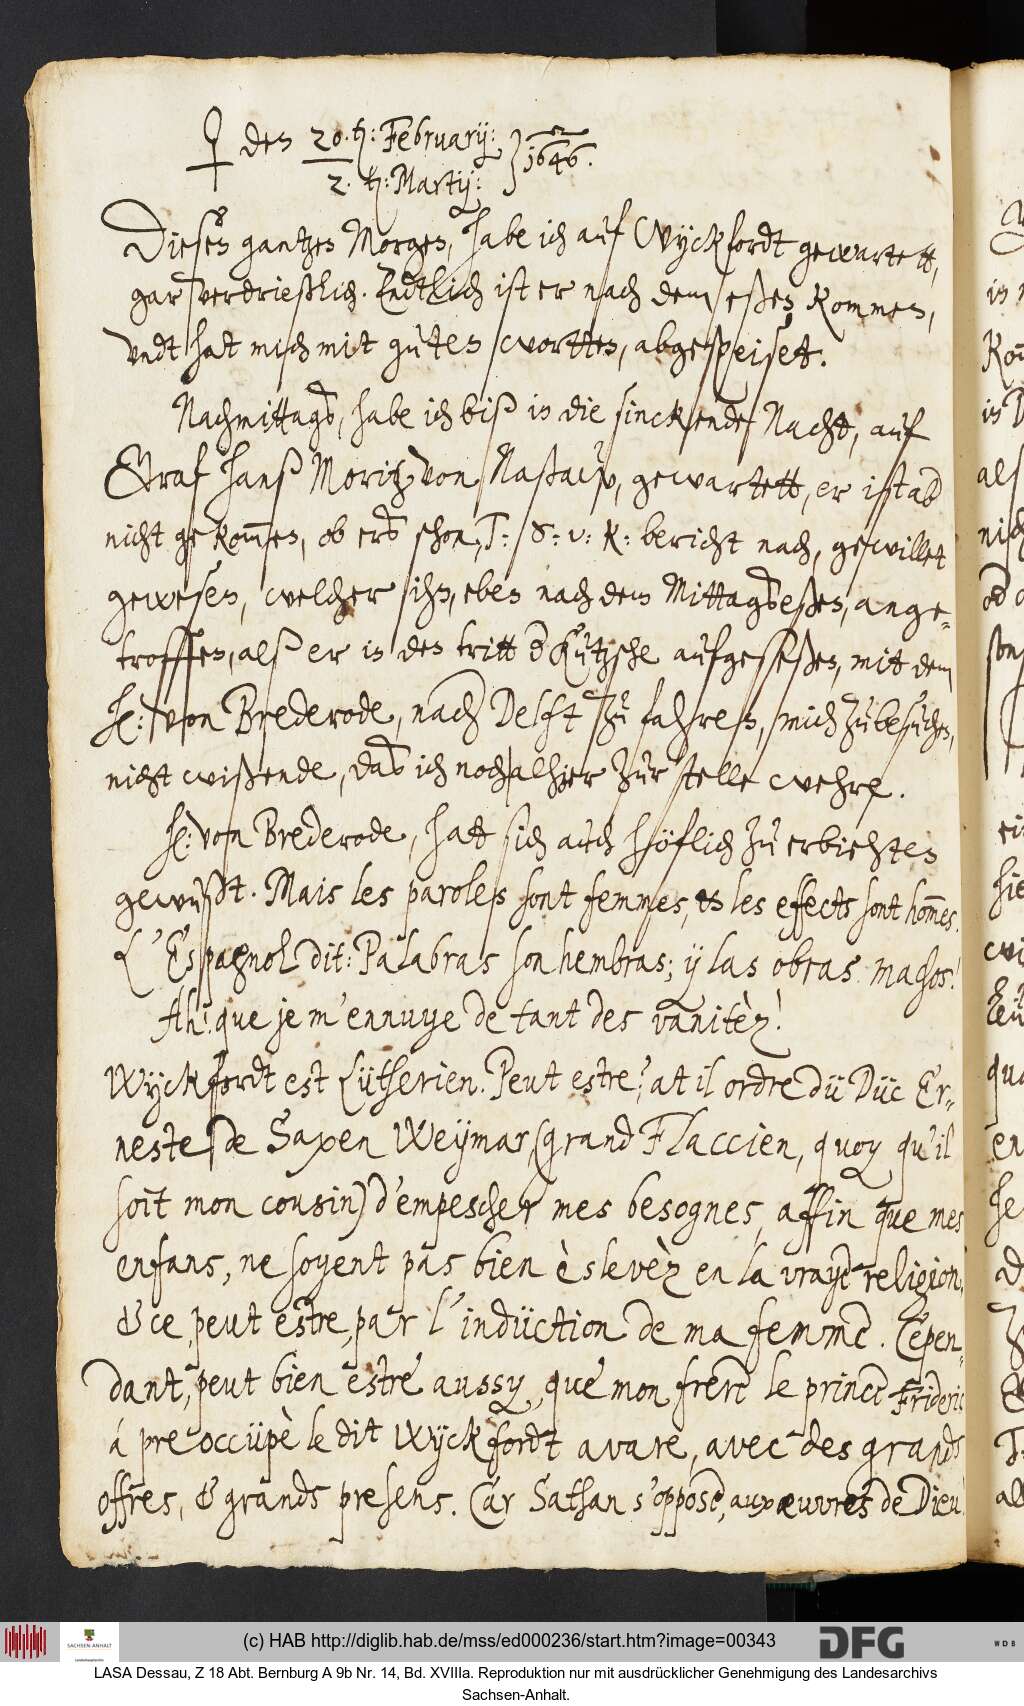 ♀ den 20. h: February: } 1646.
2. h: Martij:
Diesen gantzen Morgen, habe ich auf Wyckfordt gewartett,
gar verdrießlich. Endtlich ist er nach dem eßen kommen,
undt hat mich mit guten wortten, abgespeiset.
Nachmittagß, habe ich biß in die sinckende Nacht, auf
Graf Hanß Moritz von Naßaw, gewartett, er ist ab
nicht gekom̅en, ob erß schon, T: S: v: K: bericht nach, gewillet
gewesen, welcher ihn, eben nach dem Mittagßeßen, ange-
troffen, alß er in den tritt d Kutzsche aufgeseßen, mit dem
H: von Brederode, nach Delft zu fahren, mich zu besuchen,
nicht wißende, daß ich noch alhier zur stelle wehre.
H: von Brederode, hatt sich auch höflich zu erbiehten
gewußt. Mais les paroles sont femmes, & les effects sont hom̅es.
L'Espagnol dit: Palabras son hembras; ÿ las obras machos!
Ah! que je m'ennuye de tant des vanitèz!
Wÿckfordt est Lütherien. Peut estre; at il ordre dü Düc Er-
neste de Saxen Weÿmar, (grand Flaccien, quoy qu'il
soit mon cousin) d'empescher mes besognes, affin que mes
enfans, ne soyent pas bien èslevèz en la vraye religion,
& ce, peut estre, par l'indüction de ma femme. Cepen-
dant, peut bien estre aussy, que mon frere le prince Frideric
á preoccüpè le dit Wÿckfordt avare, avec des grands
offres, & grands presens. Car Sathan s'oppose, aux œuvres de Dieu!
(c) HAB http://diglib.hab.de/mss/ed000236/start.htm?image=00343
SACHSEN-ANHALT
DFG
WDB
LASA Dessau, Z 18 Abt. Bernburg A 9b Nr. 14, Bd. XVIIIa. Reproduktion nur mit ausdrücklicher Genehmigung des Landesarchivs
Sachsen-Anhalt.